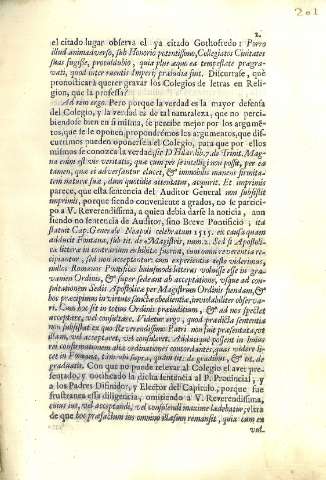 201
2.
el citado lugar observa el ya citado Gothofredo: Porro
illud animadverso, sub Honorio potentissimo, Collegiatos Civitates
suas fugisse, proculdubio, quia plus æquo ea tempestate prægra-
vati, quod inter ruentis Imperij præludia fuit. Discurrase, què
pronosticarà querer gravar los Colegios de letras en Reli-
gion, que la professa?
Ad rem ergo. Pero porque la verdad es la mayor defensa
del Colegio, y la verdad es de tal naturaleza, que no perci-
biendose bien en si misma, se percibe mejor por los argumẽ-
tos, que se le oponen propondrèmos los argumentos, que dis-
currimos pueden ponersela al Colegio, para que por ellos
mismos se conozca la verdad; ise D. Hilar. lib. 7. de Trinit. Mag-
na enim est vis veritatis, quæ cum per se intelligi non possit, per ea
tamen, quæ ei adversantur elucet, & immobilis manens firmita-
tem naturæ suæ, dum quotidie attentatur, acquirit. Et imprimis
parece, que esta sentencia del Auditor General non subsistit
imprimis, porque siendo conveniente a grados, no se partici-
pò a V. Reverendissima, a quien debia darse la noticia, aun
siendo no Sentencia de Auditor, sino Breve Pontificio; ita
statuit Cap. Generale Neapoli celebratum 1525. ex causa quam
adducit Fontana, sub tit. de Magistris, num. 2. Sed si Apostoli-
cæ litteræ in contrarium exhibitæ fuerint, cum omni reverentia re-
cipiantur, sed non acceptentur: cum experientia teste viderimus,
nullos Romanos Pontifices huiusmodi litteras voluisse esse in gra-
vamen Ordinis, & super sedeant ab acceptatione, usque ad con-
sultationem Sedis Apostolicæ per Magistrum Ordinis fiendam, &
hoc præcipimus in virtute sanctæ obedientiæ, inviolabiliter observa-
ri. Cum hoc sit in totius Ordinis præiudicium, & ad nos spectet
acceptare, vel consultare. Videtur ergo, quod prædicta sententia
non subsistat ex quo Reverendissimo Patri non fuit præsentata, vt
illam, vel acceptaret, vel consuleret. Adduci que possent in huius
rei confirmationem aliæ ordinationes concordantes, quas videre li-
cet in Fontana, titulo supra, quàm tit. de gratibus, & tit. de
graduatis. Con que no puede relevar al Colegio el aver pre-
sentado, y notificado la dicha sentencia al P. Provincial, y
a los Padres Difinidor, y Elector del Capitulo, porque fue
frustranea essa diligencia, omitiendo a V. Reverendissima,
cuius ius, vel acceptandi, vel consulendi maxime lædebatur; vltra
de que hoc præfactum ius omnino illæsum remansit, quia cum ex
vol-